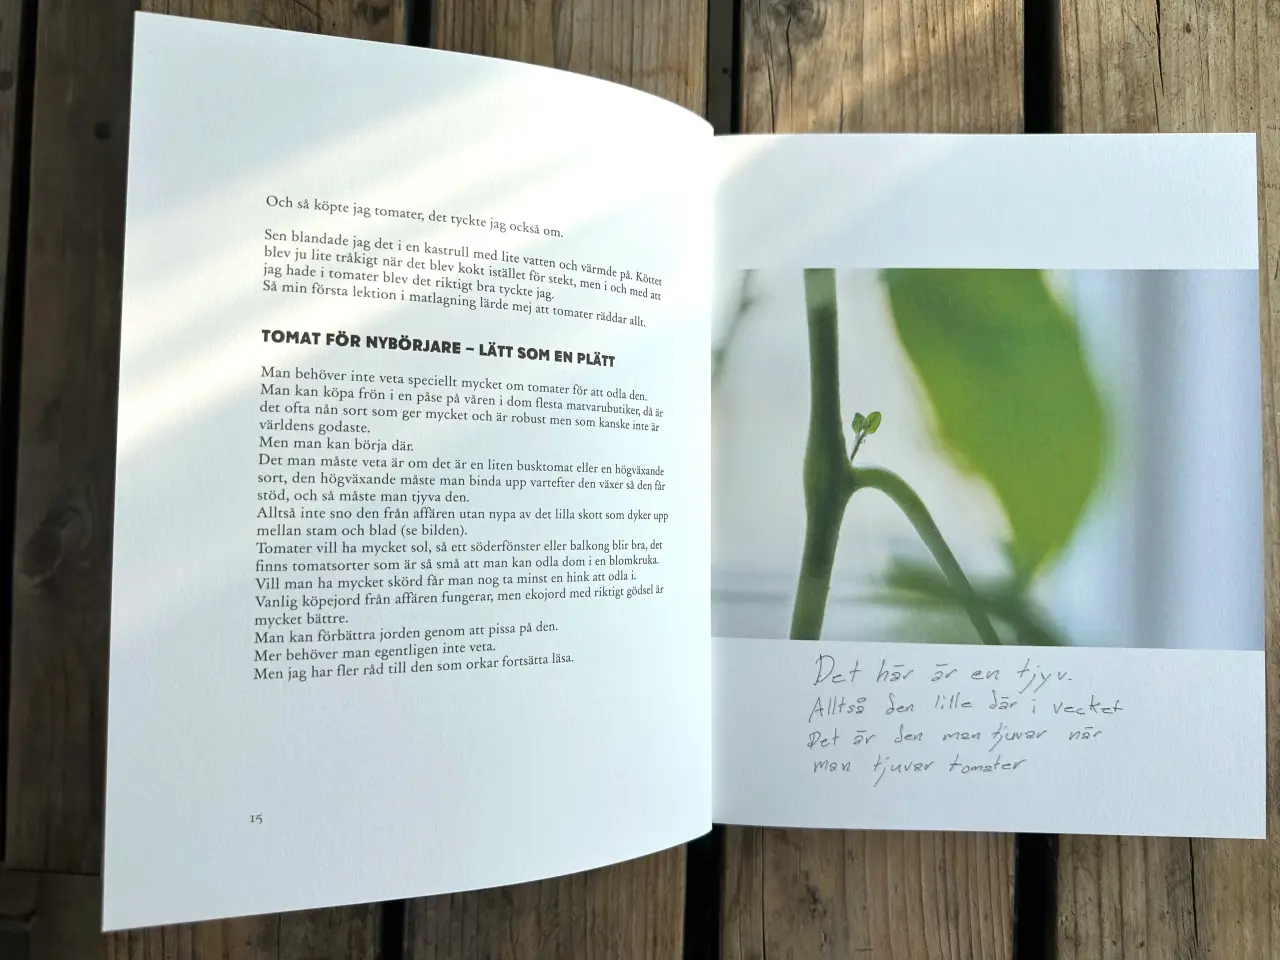 Och så köpte jag tomater, det tyckte jag också om.
Sen blandade jag det i en kastrull med lite vatten och värmde på. Köttet
blev ju lite tråkigt när det blev kokt istället för stekt, men i och med att
jag hade i tomater blev det riktigt bra tyckte jag.
Så min första lektion i matlagning lärde mej att tomater räddar allt.
TOMAT FÖR NYBÖRJARE – LÄTT SOM EN PLÄTT
Man behöver inte veta speciellt mycket om tomater för att odla den.
Man kan köpa frön i en påse på våren i dom flesta matvarubutiker, då är
det ofta nån sort som ger mycket och är robust men som kanske inte är
världens godaste.
Men man kan börja där.
Det man måste veta är om det är en liten busktomat eller en högväxande
sort, den högväxande måste man binda upp vartefter den växer så den får
stöd, och så måste man tjyva den.
Alltså inte sno den från affären utan nypa av det lilla skott som dyker upp
mellan stam och blad (se bilden).
Tomater vill ha mycket sol, så ett söderfönster eller balkong blir bra, det
finns tomatsorter som är så små att man kan odla dom i en blomkruka.
Vill man ha mycket skörd får man nog ta minst en hink att odla i.
Vanlig köpejord från affären fungerar, men ekojord med riktigt gödsel är
mycket bättre.
Man kan förbättra jorden genom att pissa på den.
Mer behöver man egentligen inte veta.
Men jag har fler råd till den som orkar fortsätta läsa.
15
Det här är en tjyv.
Alltså den lille där i vecket
Det är den man tjuvar när
man tjuvar tomater